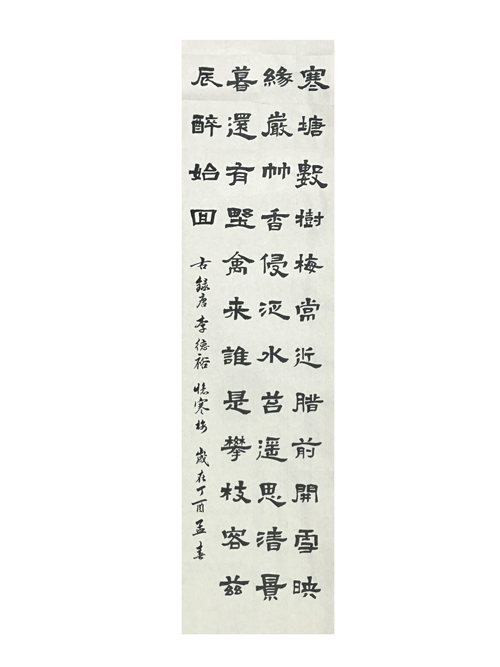 寒塘數樹梅常近腊前開雪映
緣嚴竹香侵泛水苔遥思清景
暮還有野禽来誰是攀枝容兹
辰醉始回
右錄唐李德裕憶寒梅歲在丁酉孟春